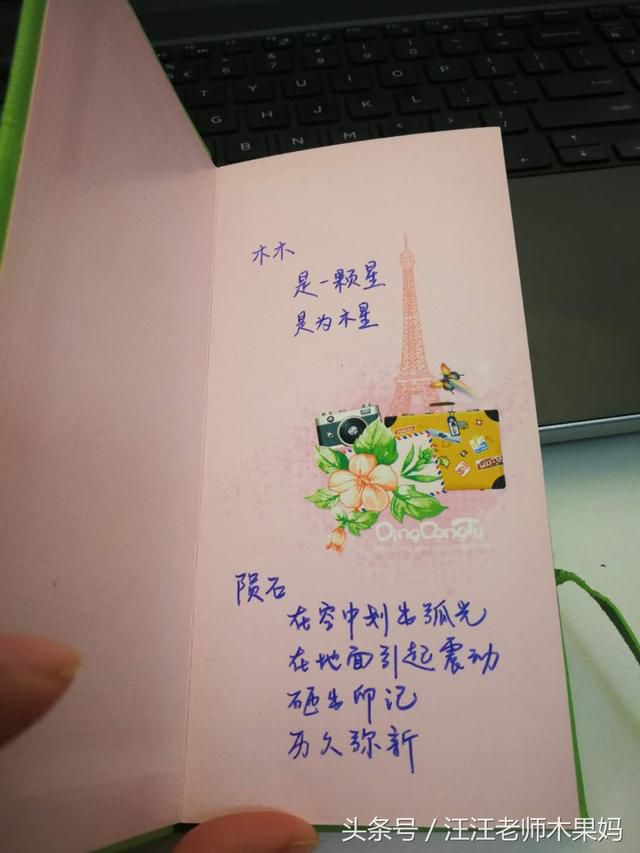 木木
是一颗星
是为木星
DingDongTu
陨石
在空中划出弧光
在地面引起震动
砸出印记
历久弥新
头条号／汪汪老师木果妈